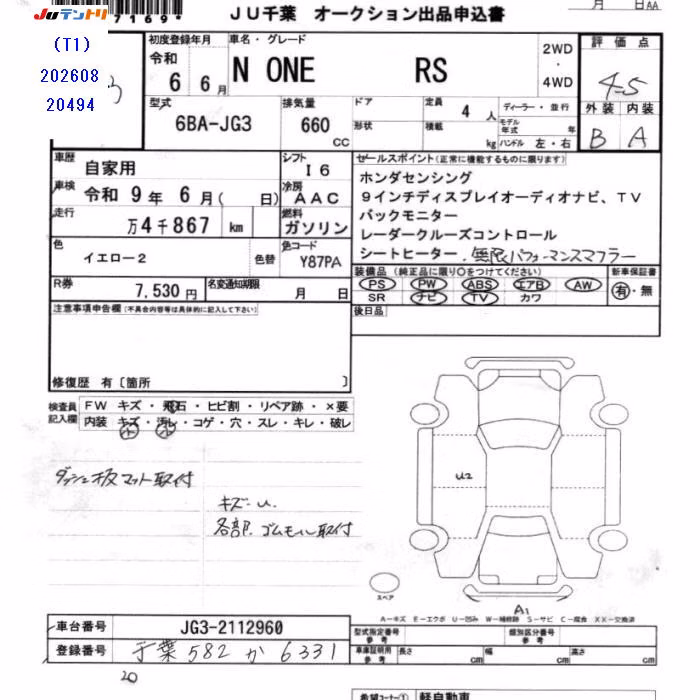 JUテントリ
7169*
JU千葉 オークション出品申込書
月 日 AA
(T1)
202608
20494
初度登録年月
令和
6 6月
車名・グレード
N ONE RS
2WD
・
4WD
評価点
4.5
外装 内装
B A
型式
6BA-JG3
排気量
660 CC
ドア
形状
定員 4 人
積載 kg
ディーラー・並行
モデル年式 年
ハンドル 左・右
車歴 自家用
シフト I6
車検 令和 9年 6月( 日)
冷房 AAC
走行 万4千867 km
燃料 ガソリン
色 イエロー2
色替
色コード Y87PA
R券 7,530円
名変通知期限 月 日
セールスポイント(正常に機能するものに限ります)
ホンダセンシング
9インチディスプレイオーディオナビ、TV
バックモニター
レーダークルーズコントロール
シートヒーター、無限パフォーマンスマフラー
装備品 (純正品に限り○をつけてください)
PS PW ABS エアB AW
SR ナビ TV カワ
新車保証書
有・無
後日品
注意事項申告欄(不具合内容等は具体的に記入して下さい)
修復歴 有〔箇所 〕
検査員記入欄
FW キズ・飛石・ヒビ割・リペア跡・×要
内装 キズ・汚レ・コゲ・穴・スレ・キレ・破レ
小 小
ダッシュ板マット取付
キズ・U.
各部.ゴムモール取付
U2
スペア
A1
A−キズ E−エクボ U−凹み W−補修跡 S−サビ C−腐食 XX−交換済
車台番号 JG3-2112960
登録番号 千葉 582 か 6331
型式指定番号 参考
類別区分番号 参考
車庫証明用 参考
長さ cm 幅 cm 高さ cm
20
希望コーナー① 軽自動車